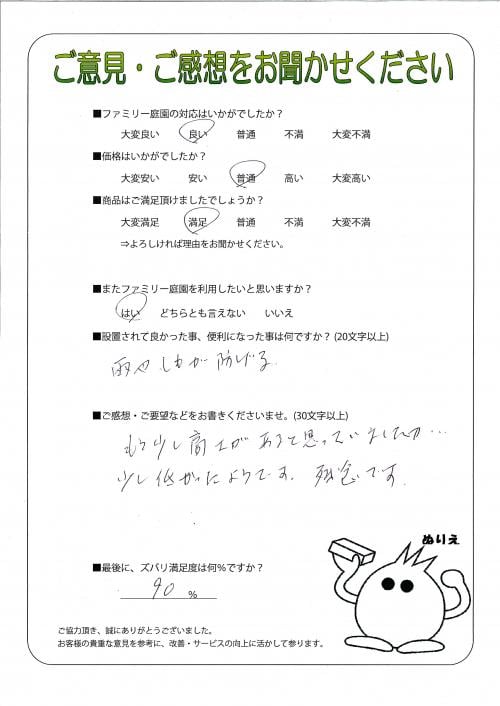 ご意見・ご感想をお聞かせください
■ファミリー庭園の対応はいかがでしたか？
大変良い 良い 普通 不満 大変不満
■価格はいかがでしたか？
大変安い 安い 普通 高い 大変高い
■商品はご満足頂けましたでしょうか？
大変満足 満足 普通 不満 大変不満
⇒よろしければ理由をお聞かせください。
■またファミリー庭園を利用したいと思いますか？
はい どちらとも言えない いいえ
■設置されて良かった事、便利になった事は何ですか？ (20文字以上)
雨や しもが 防げる
■ご感想・ご要望などをお書きくださいませ。(30文字以上)
もう少し高さがあると思っていましたが…
少し低かったようです。残念です。
ぬりえ
■最後に、ズバリ満足度は何%ですか？
90 %
ご協力頂き、誠にありがとうございました。
お客様の貴重な意見を参考に、改善・サービスの向上に活かして参ります。